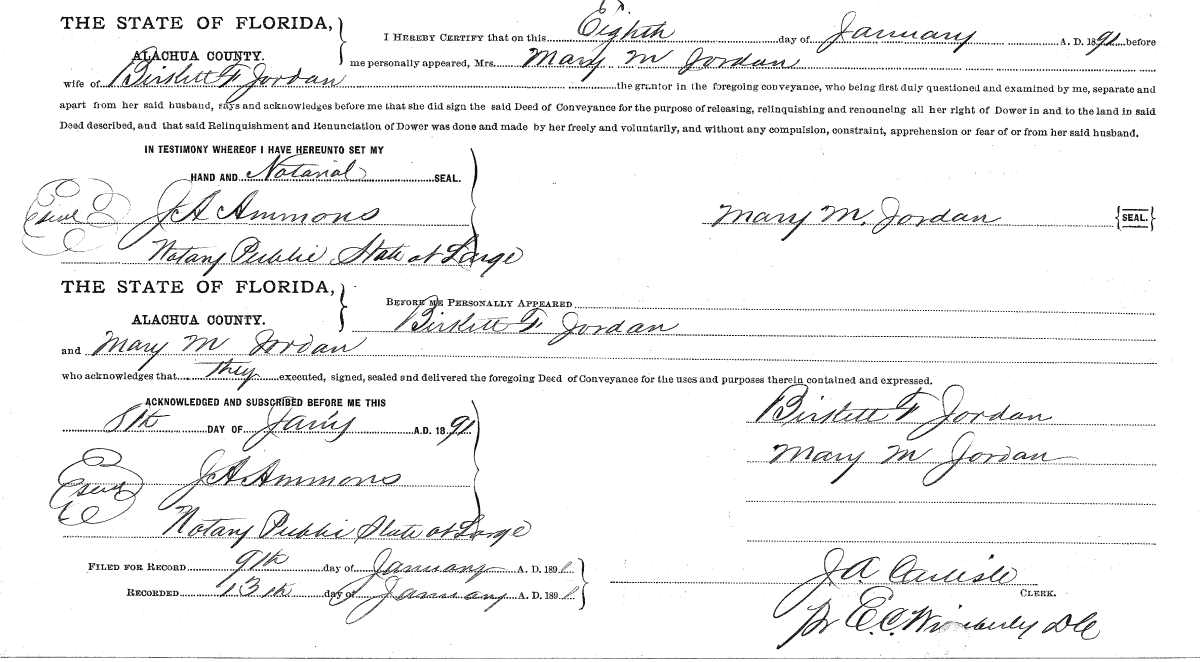 THE STATE OF FLORIDA,
ALACHUA COUNTY.
I HEREBY CERTIFY that on this Eighth day of January A. D. 1891 before
me personally appeared, Mrs. Mary M Jordan
wife of Birkett F Jordan the grantor in the foregoing conveyance, who being first duly questioned and examined by me, separate and
apart from her said husband, says and acknowledges before me that she did sign the said Deed of Conveyance for the purpose of releasing, relinquishing and renouncing all her right of Dower in and to the land in said
Deed described, and that said Relinquishment and Renunciation of Dower was done and made by her freely and voluntarily, and without any compulsion, constraint, apprehension or fear of or from her said husband.
IN TESTIMONY WHEREOF I HAVE HEREUNTO SET MY
HAND AND Notarial SEAL.
J A Ammons
Mary M. Jordan {SEAL.}
Notary Public State at Large
THE STATE OF FLORIDA,
ALACHUA COUNTY.
BEFORE ME PERSONALLY APPEARED
Birkett F Jordan
and Mary M Jordan
who acknowledges that They executed, signed, sealed and delivered the foregoing Deed of Conveyance for the uses and purposes therein contained and expressed.
ACKNOWLEDGED AND SUBSCRIBED BEFORE ME THIS
8th DAY OF Jan'y A.D. 1891
Birkett F Jordan
Mary M Jordan
J A Ammons
Notary Public State at Large
FILED FOR RECORD 9th day of January A. D. 1891
RECORDED 13th day of January A. D. 1891
J A. Carlisle
CLERK.
pr E. C. Wimberly D C